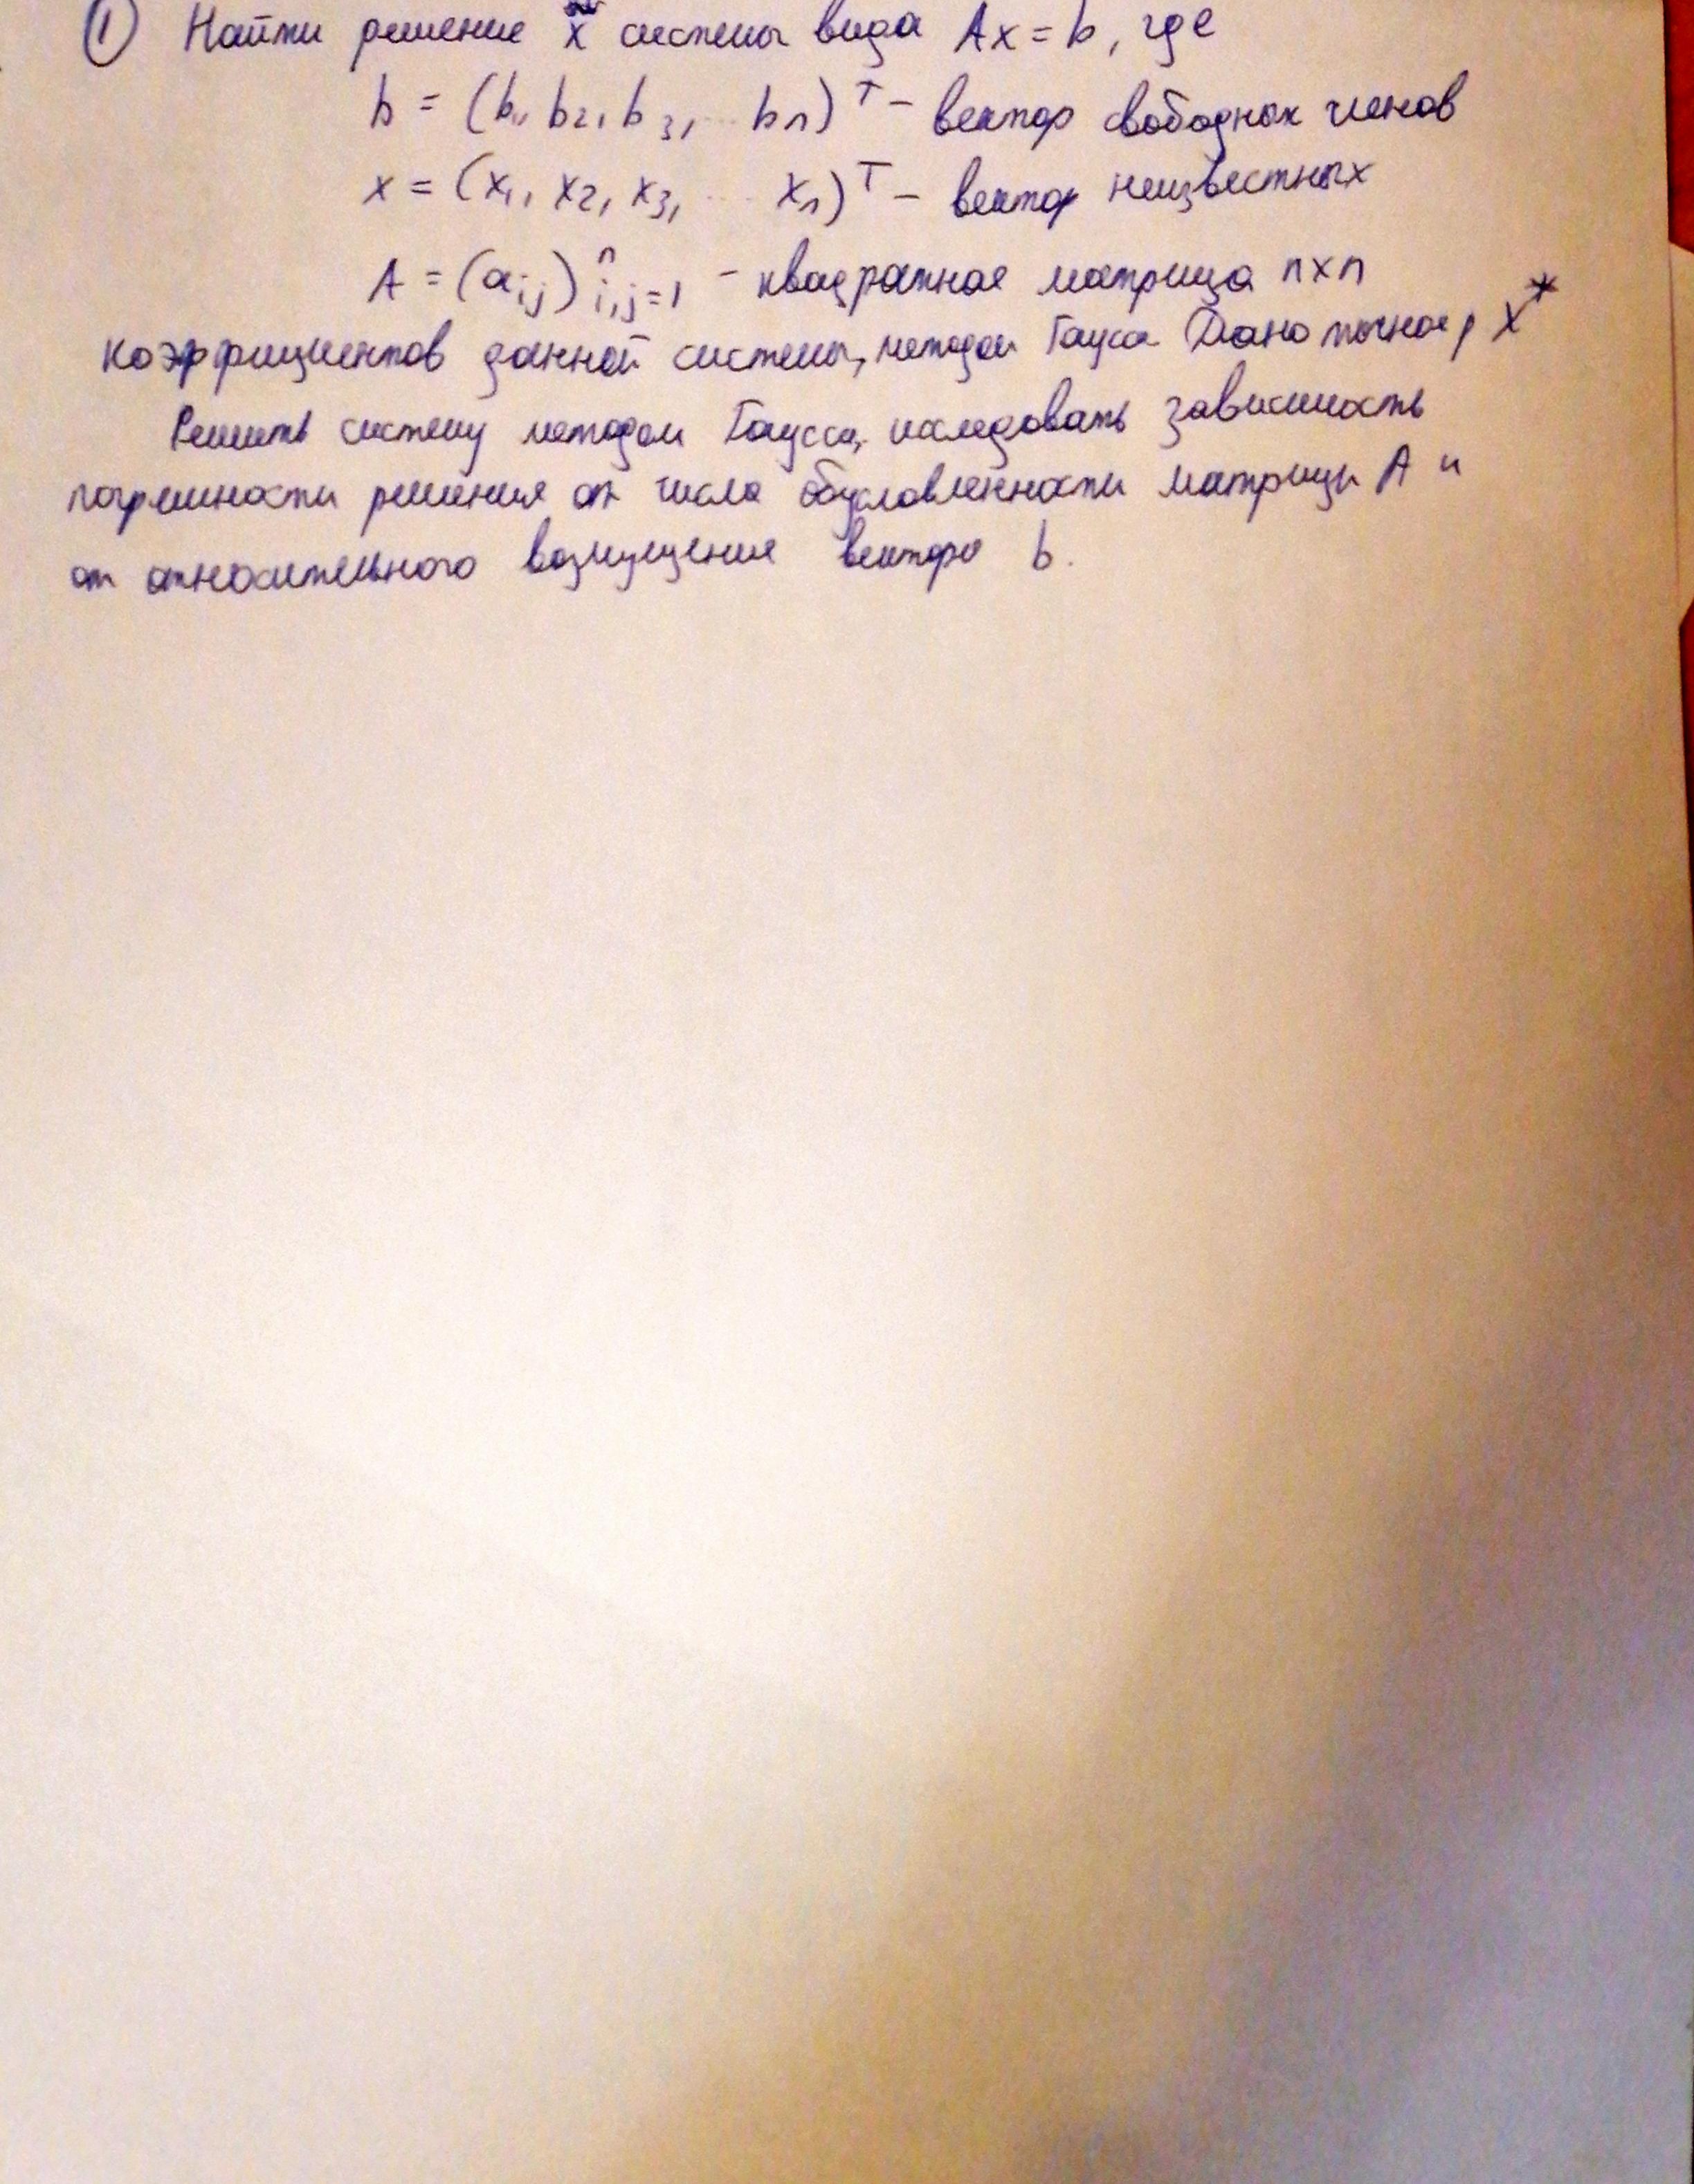 ① Найти решение x системы вида Ax = b, где
b = (b₁, b₂, b₃, ... bₙ)ᵀ – вектор свободных членов
x = (x₁, x₂, x₃, ... xₙ)ᵀ – вектор неизвестных
A = (aᵢⱼ)ⁿᵢ,ⱼ₌₁ – квадратная матрица n×n
коэффициентов данной системы, методом Гаусса Дано точное x*
Решить систему методом Гаусса, исследовать зависимость
погрешности решения от числа обусловленности матрицы A и
от относительного возмущения вектора b.